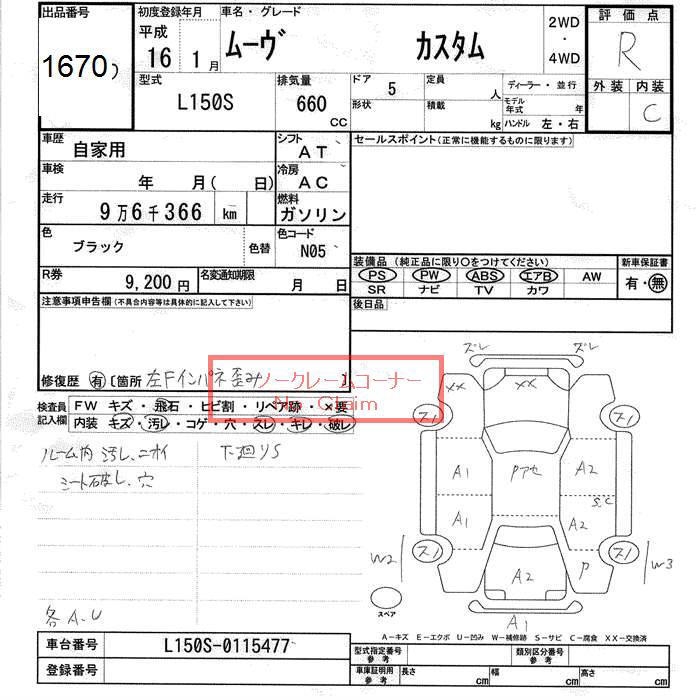 出品番号
1670
初度登録年月
平成
16 1月
車名・グレード
ムーヴ カスタム
2WD
・
4WD
評価点
R
外装 内装
C
型式
L150S
排気量
660
CC
ドア 5
形状
定員
人
積載
kg
ディーラー・並行
モデル年式 年
ハンドル 左・右
車歴
自家用
シフト
AT
車検
年 月( 日)
冷房
AC
走行
9万6千366 km
燃料
ガソリン
色
ブラック
色替
色コード
N05
R券
9,200円
名変通知期限
月 日
セールスポイント(正常に機能するものに限ります)
装備品(純正品に限り○をつけてください)
PS PW ABS エアB AW
SR ナビ TV カワ
新車保証書
有・無
後日品
注意事項申告欄(不具合内容等は具体的に記入して下さい)
修復歴 有 〔箇所 左Fインパネ歪み 〕
ノークレームコーナー
No Claim
検査員
記入欄
FW キズ・飛石・ヒビ割・リペア跡・×要
内装 キズ・汚レ・コゲ・穴・スレ・キレ・破レ
ルーム内 汚レ、ニオイ 下廻りS
シート破レ、穴
各A.U
ズレ ズレ
XX XX
スト スト
A1 Pアセ A2
S.C
A1 A2
W2 スト スト W3
P
A2
スペア
A1
A-キズ E-エクボ U-凹み W-補修跡 S-サビ C-腐食 XX-交換済
車台番号 L150S-0115477
登録番号
型式指定番号
参考
類別区分番号
参考
車庫証明用
参考
長さ cm 幅 cm 高さ cm